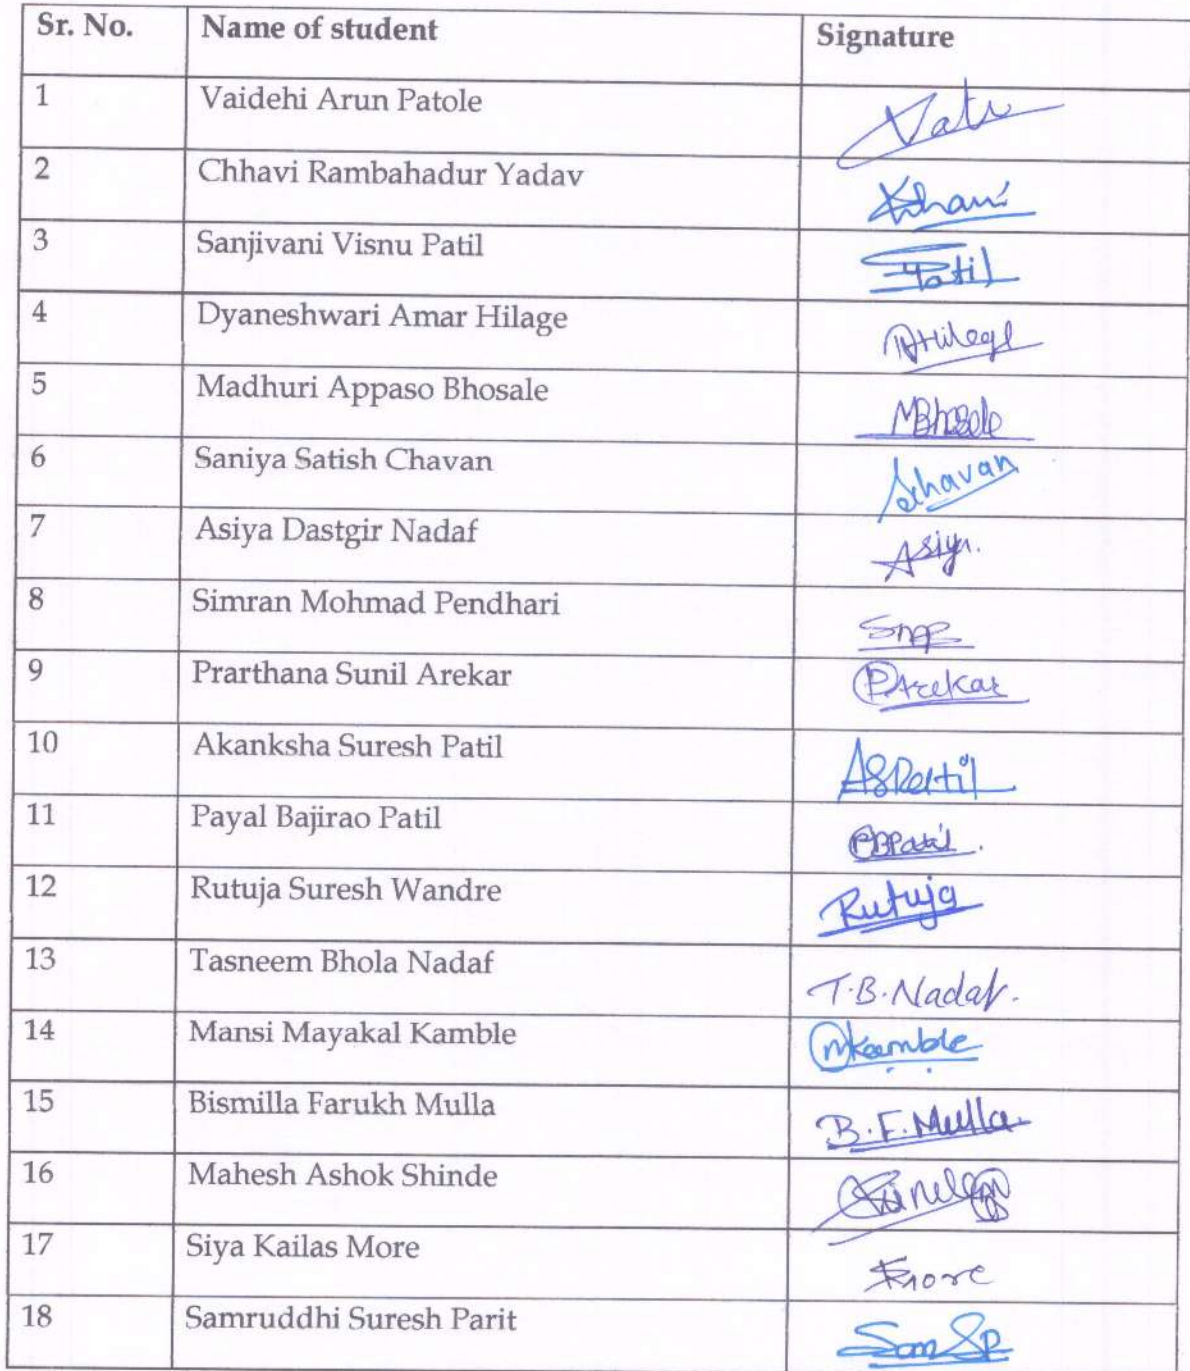 Sr. No. Name of student Signature
1 Vaidehi Arun Patole
2 Chhavi Rambahadur Yadav
3 Sanjivani Visnu Patil Patil
4 Dyaneshwari Amar Hilage
5 Madhuri Appaso Bhosale MBhosale
6 Saniya Satish Chavan Schavan
7 Asiya Dastgir Nadaf Asiya.
8 Simran Mohmad Pendhari
9 Prarthana Sunil Arekar PArekar
10 Akanksha Suresh Patil ASPatil
11 Payal Bajirao Patil PBPatil.
12 Rutuja Suresh Wandre Rutuja
13 Tasneem Bhola Nadaf T.B.Nadaf.
14 Mansi Mayakal Kamble mkamble
15 Bismilla Farukh Mulla B.F.Mulla
16 Mahesh Ashok Shinde
17 Siya Kailas More
18 Samruddhi Suresh Parit